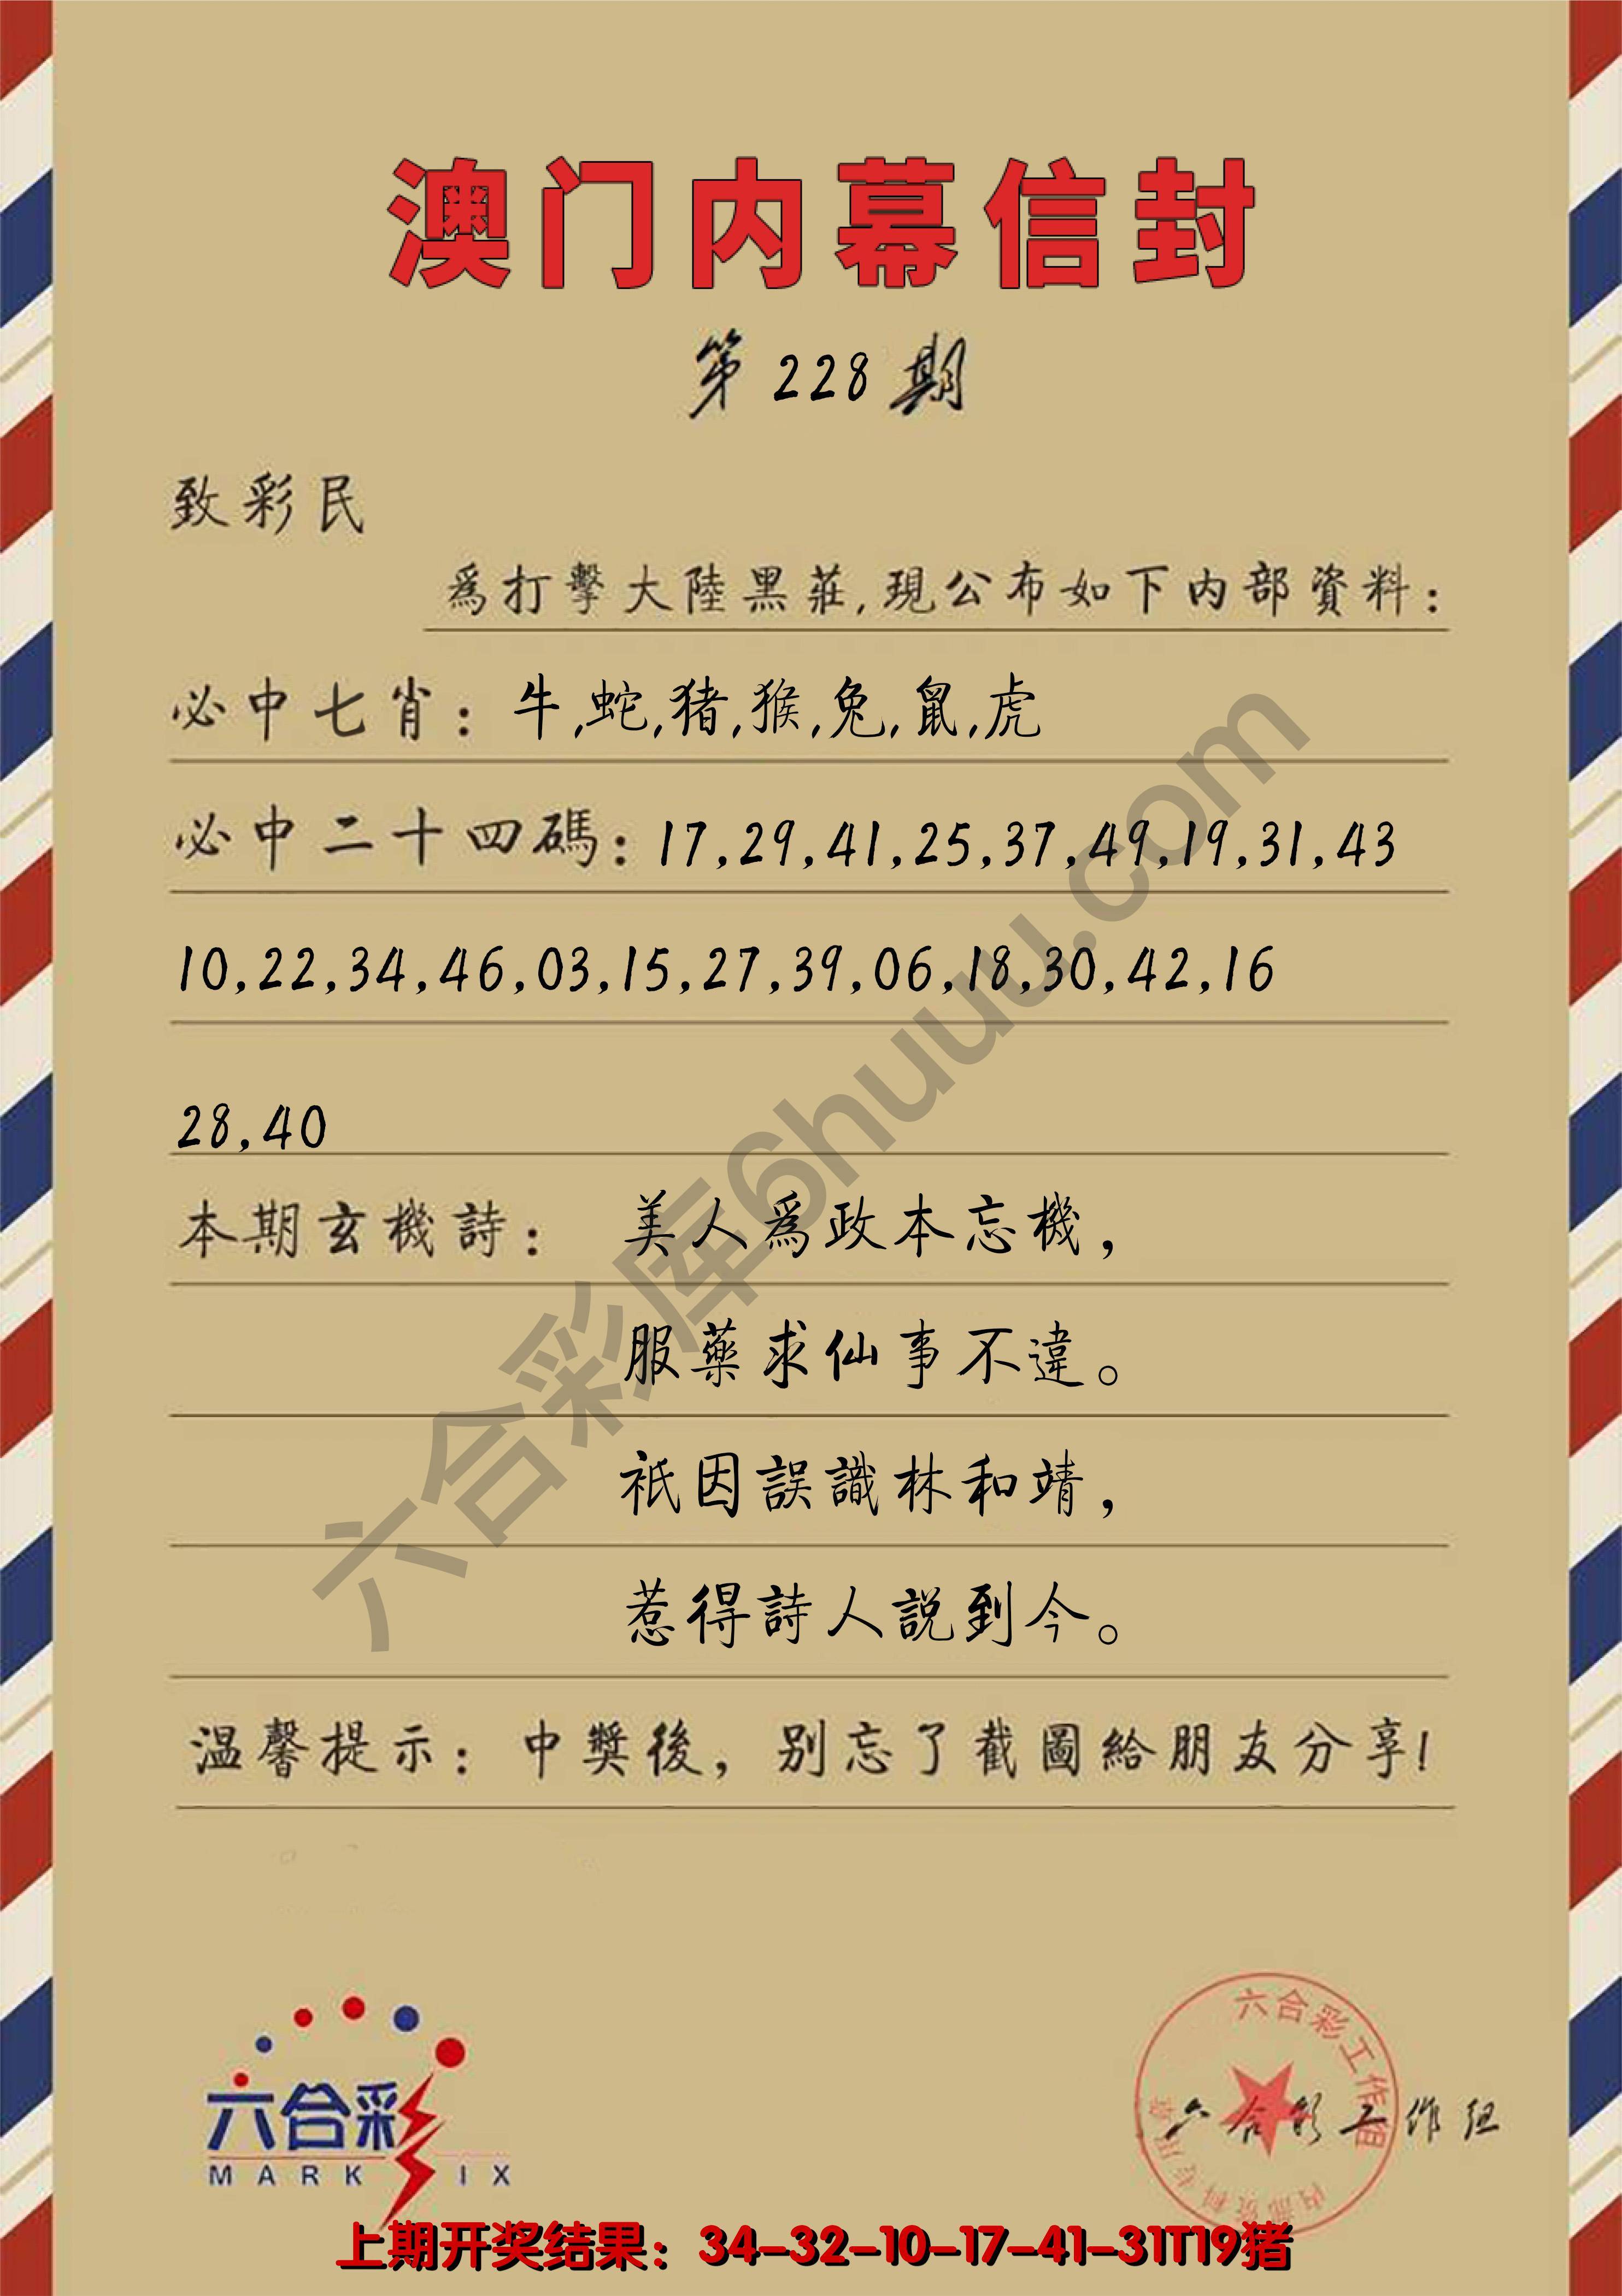 澳门内幕信封
第228期
致彩民
爲打擊大陸黑莊,現公布如下内部資料:
必中七肖: 牛,蛇,猪,猴,兔,鼠,虎
必中二十四碼: 17,29,41,25,37,49,19,31,43
10,22,34,46,03,15,27,39,06,18,30,42,16
28,40
本期玄機詩: 美人爲政本忘機,
服藥求仙事不違。
祇因誤識林和靖,
惹得詩人説到今。
温馨提示: 中獎後, 别忘了截圖給朋友分享!
六合彩库6huuu.com
六合彩
MARK IX
六合彩工作组
内部资料专用章
六合彩工作组
上期开奖结果: 34-32-10-17-41-31T19猪